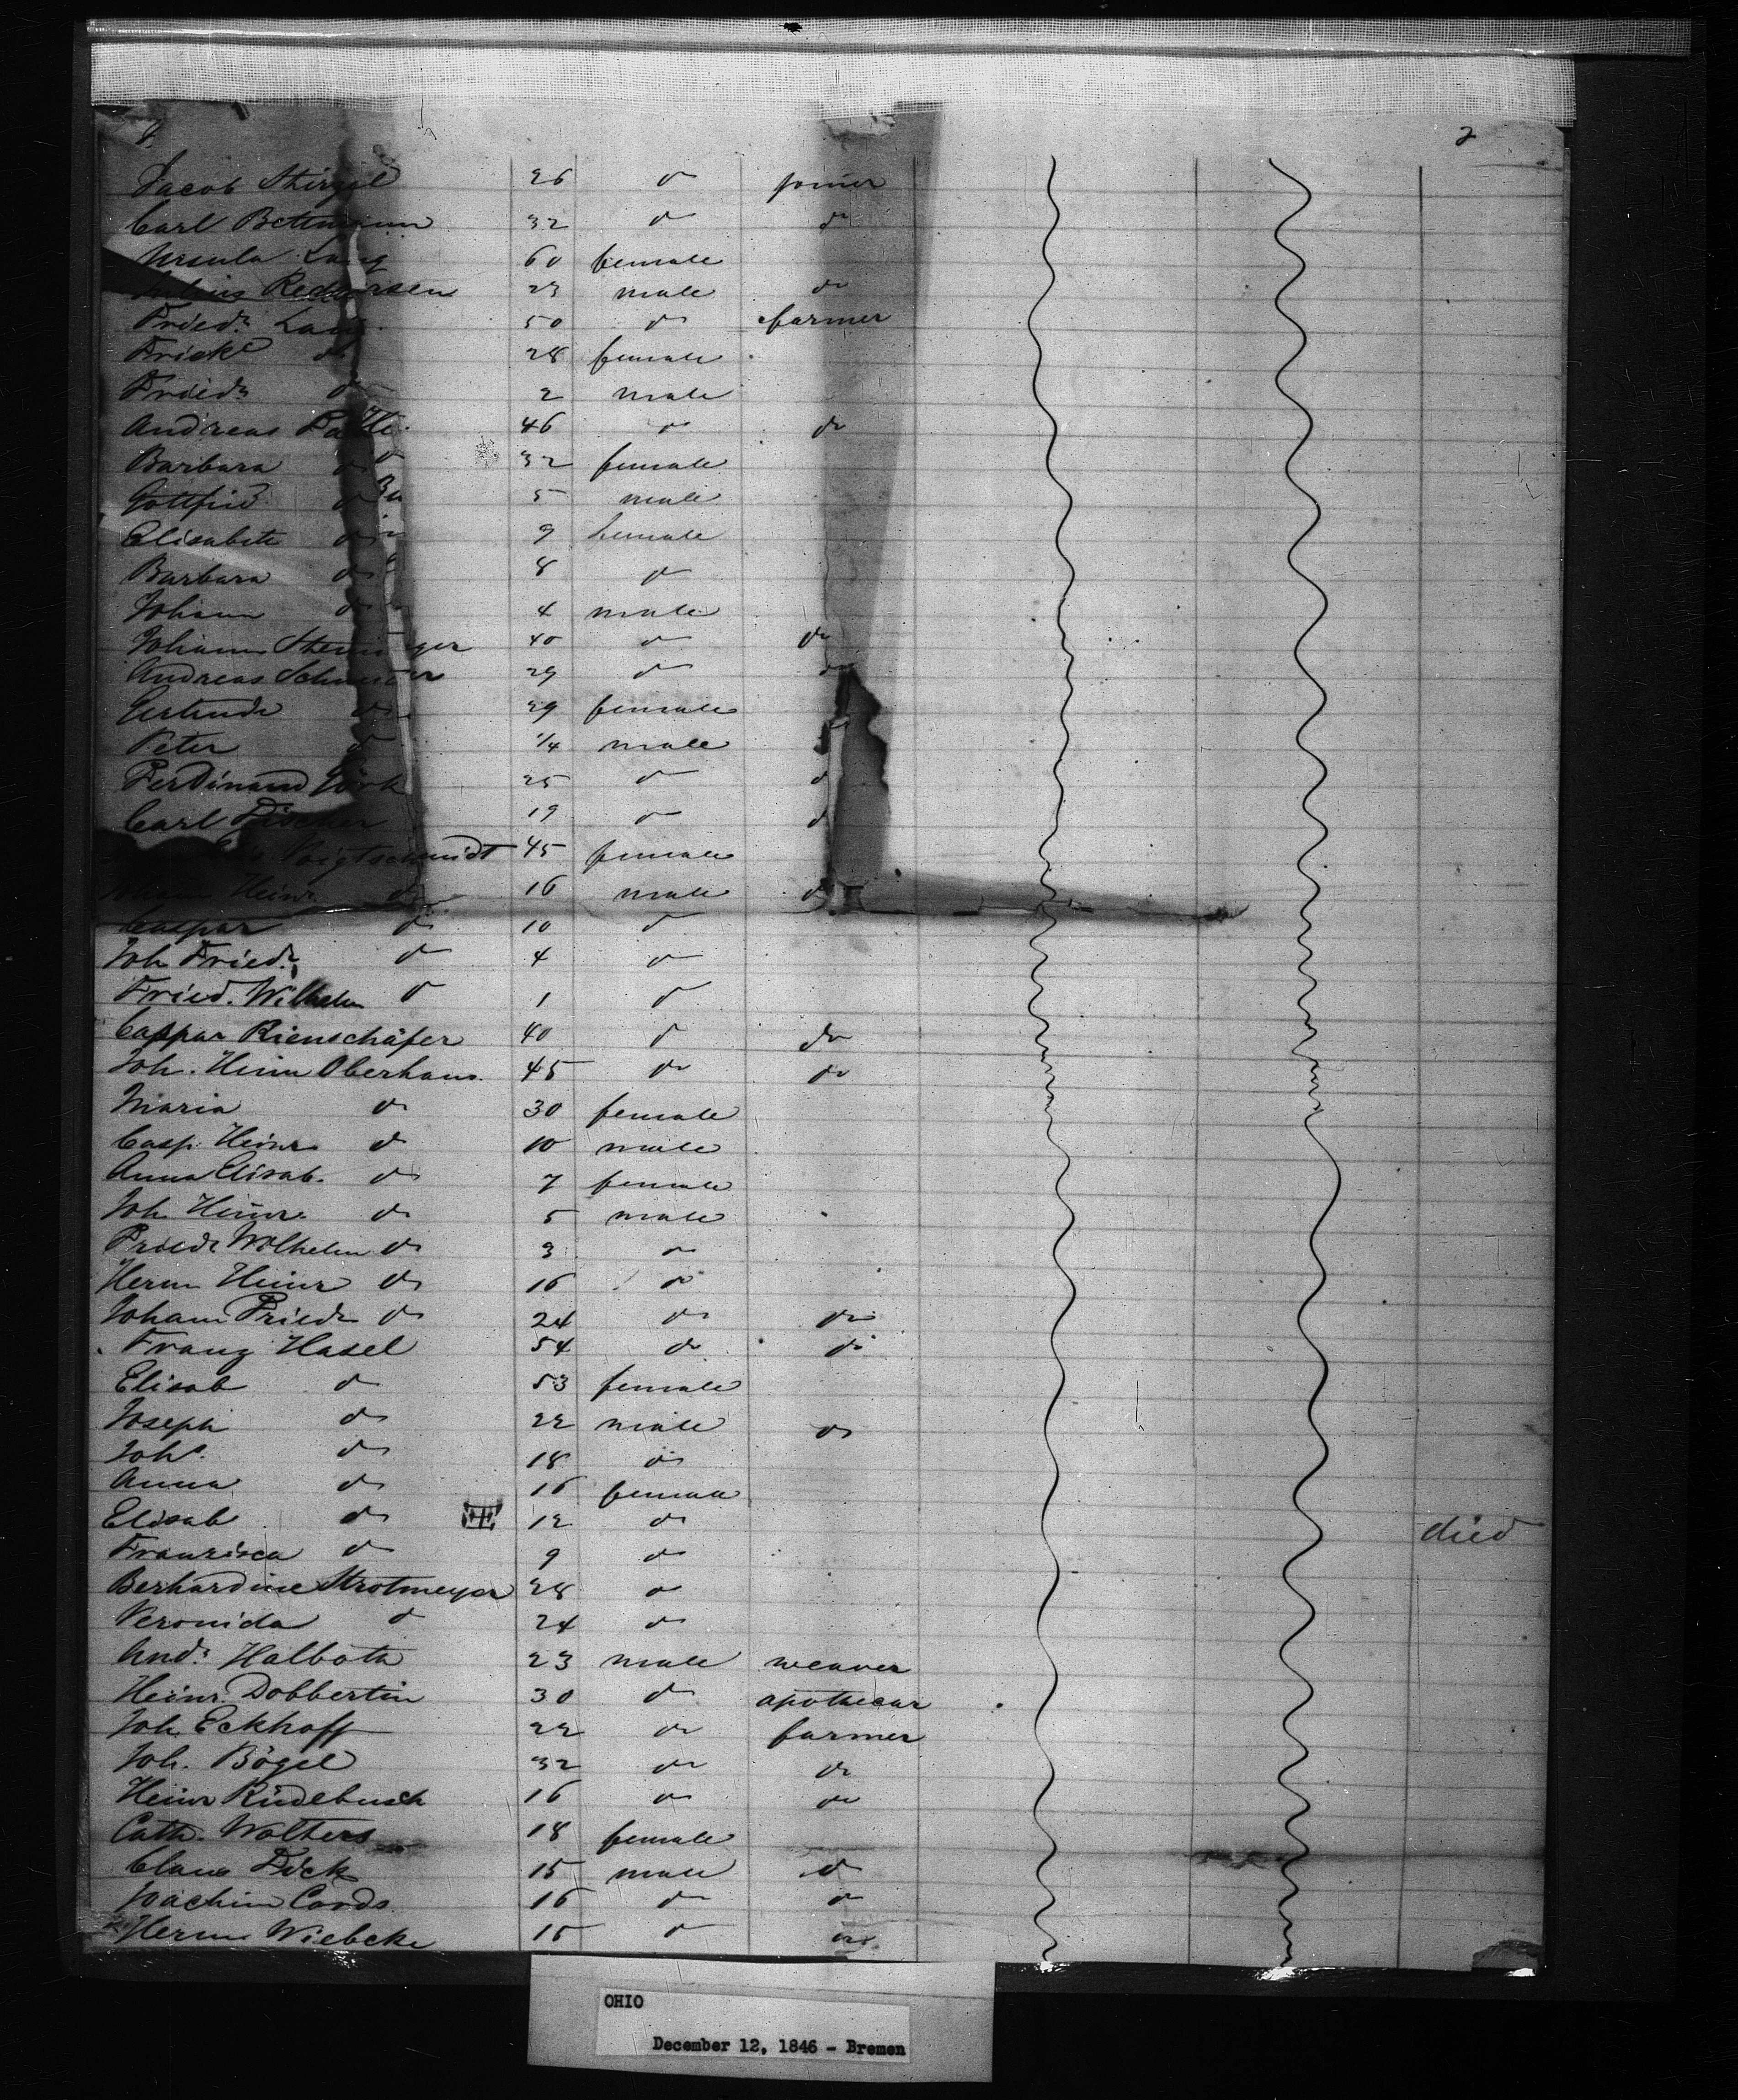 2
Jacob 26 do joiner
Carl Bettmann 32 do do
Ursula Lang 60 female
23 male do
Friedr. Lang 50 do farmer
Fricke do 28 female
Friedr. do 2 male
Andreas 46 do do
Barbara do 32 female
Gottfried do 5 male
Elisabeth do 9 female
Barbara do 8 do
Johann do 4 male
Johann 40 do do
Andreas 29 do do
Gertrude do 29 female
Peter do 1/4 male
Ferdinand 25 do d
Carl 19 do d
Voigtschmidt 45 female
Johann Heinr. do 16 male d
Caspar do 10 do
Joh Friedr. do 4 do
Fried. Wilhelm do 1 do
Caspar Rienschäfer 40 do do
Joh. Heinr Oberhaus 45 do do
Maria do 30 female
Casp. Heinr do 10 male
Anna Elisab. do 7 female
Joh Heinr. do 5 male
Friedr Wilhelm do 3 do
Herm Heinr do 16 do
Johann Friedr do 24 do do
Franz Hasel 54 do do
Elisab do 53 female
Joseph do 22 male do
Joh. do 18 do
Anna do 16 female
Elisab do 12 do died
Franzisca do 9 do
Berhardine Strotmeyer 28 do
Veronida do 24 do
Andr. Halboth 23 male weaver
Heinr. Dobbertin 30 do apothecar
Joh Eckhoff 22 do farmer
Joh. Bögel 32 do do
Heinr Rüdebusch 16 do do
Cath. Wolters 18 female
Claus Fick 15 male do
Joachim Cords 16 do do
Herm Wiebcke 15 do do
OHIO
December 12, 1846 - Bremen